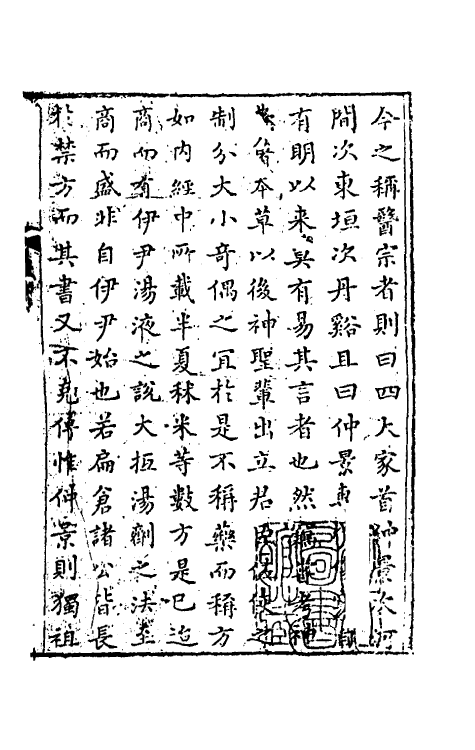 今之稱醫宗者則曰四大家首仲景次河
間次東垣次丹谿且曰仲景專
有明以來莫有易其言者也然
本草以後神聖輩出立君臣佐使之
制分大小奇偶之宜於是不稱藥而稱方
如內經中所載半夏秫米等數方是已迨
商而有伊尹湯液之說大抵湯劑之法至
商而盛非自伊尹始也若扁倉諸公皆長
於禁方而其書又不克傳惟仲景則獨祖